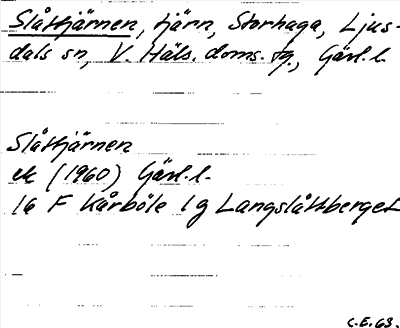 Slåttjärnen, tjärn, Storhaga, Ljus-
dals sn, V. Häls. doms. sg., Gävl. l.
Slåttjärnen
ek (1960) Gävl. l.
16 F Kårböle 1 g Langslåttberget
C.E. 63.